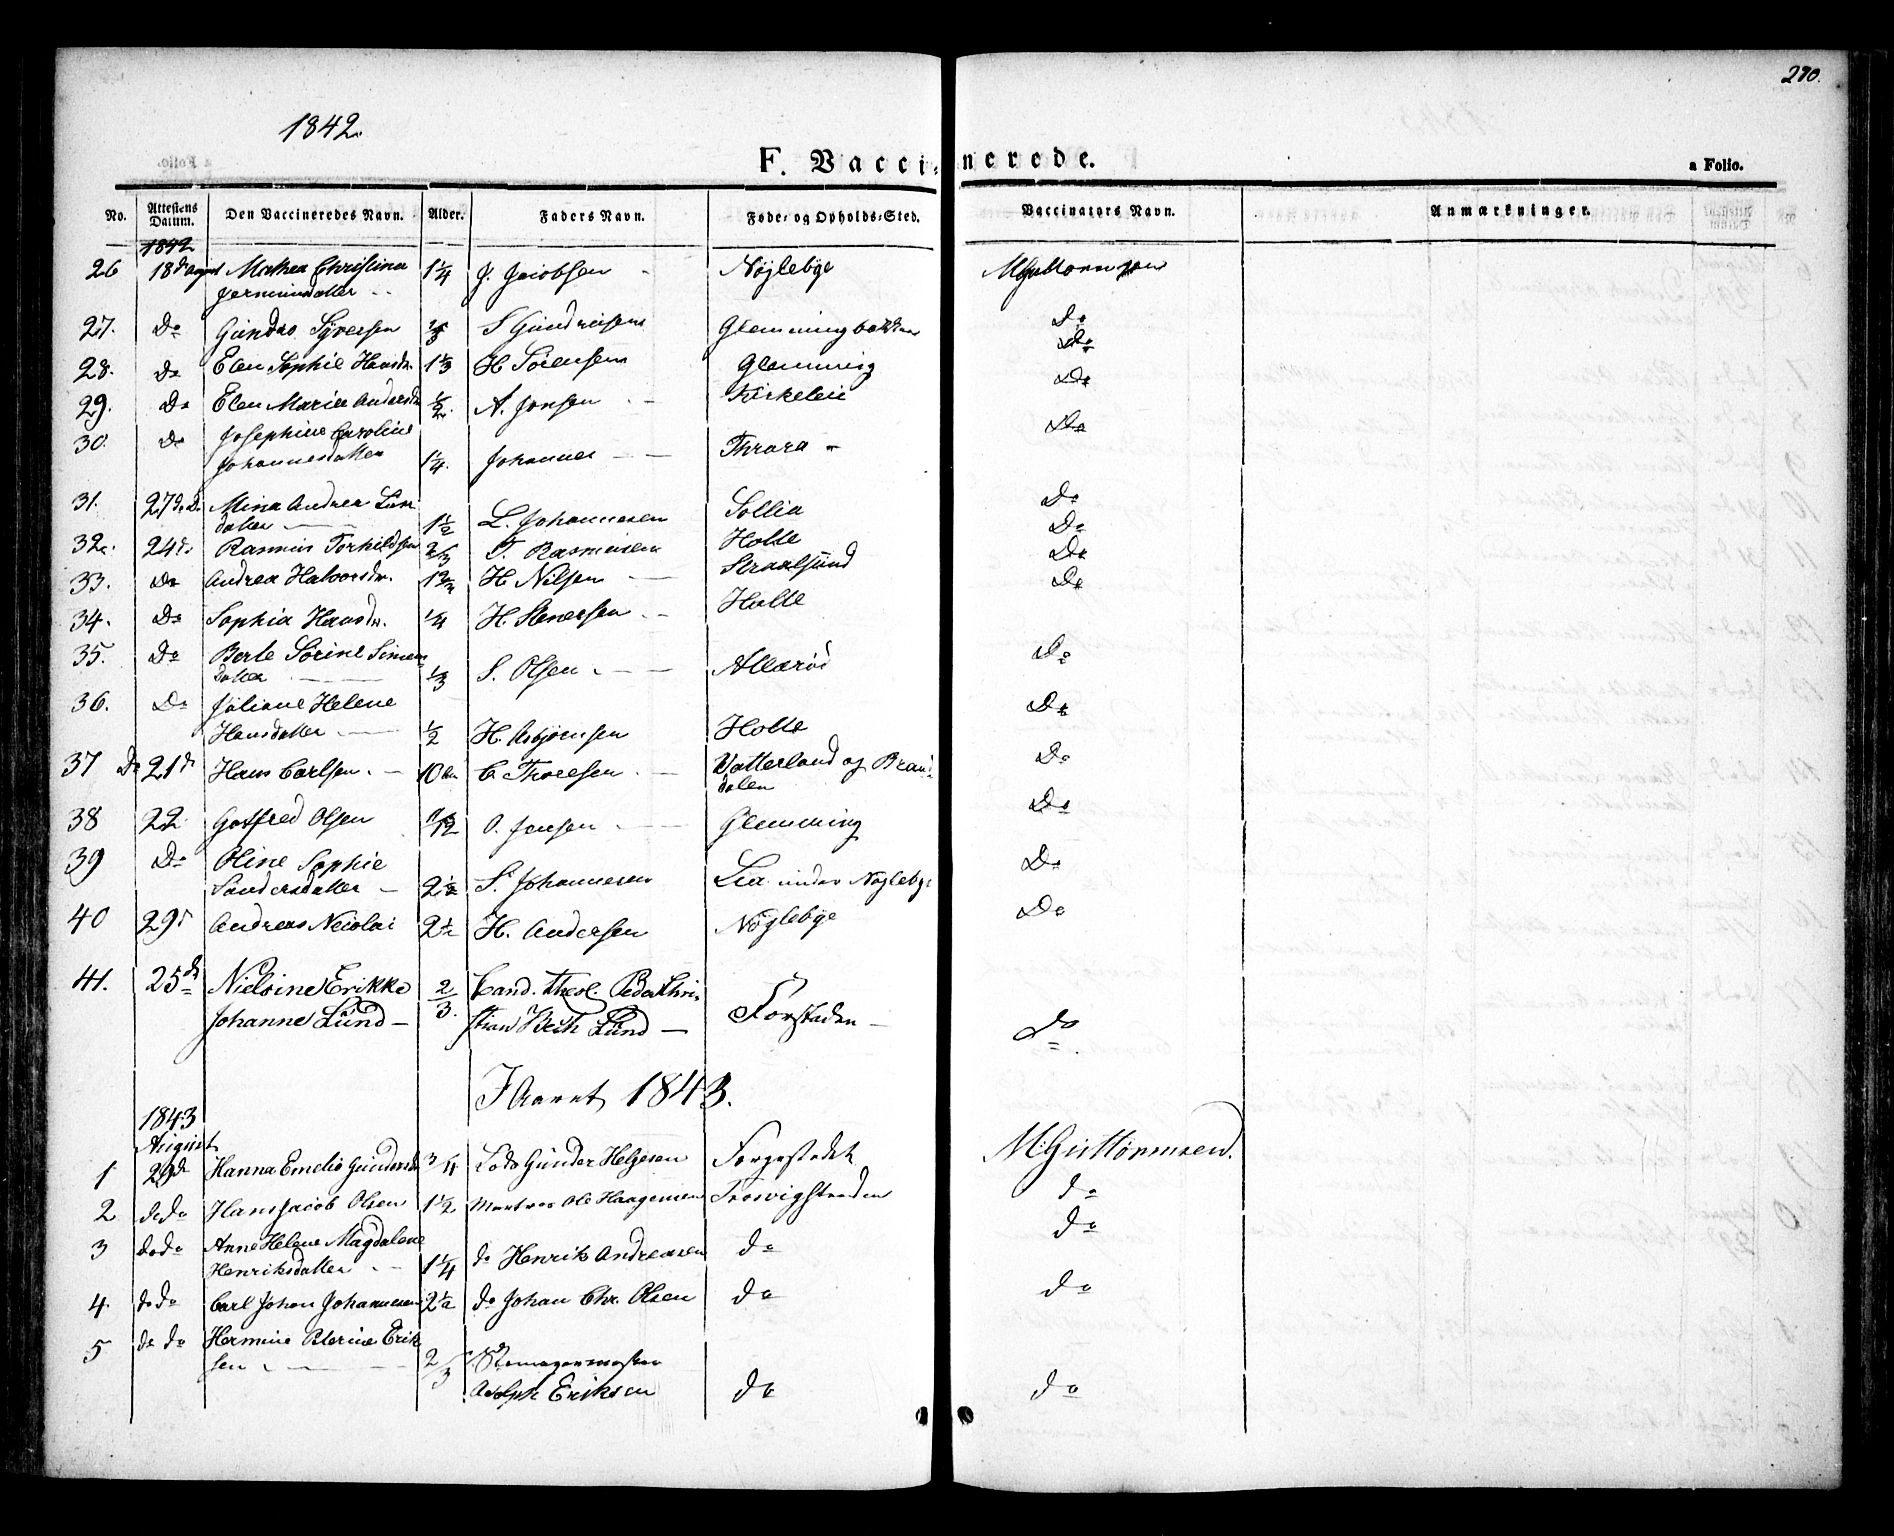 270.
1842.
F. Vaccinerede.
a Folio.
No. Attestens Datum. Den Vaccineredes Navn. Alder. Faders Navn. Føde- og Opholds-Sted. Vaccinators Navn. Anmærkninger.
1842
26 18de august Mathea Christina 1 1/4 J. Jacobsen - Nøglebye M. Guttormsen
27. Do Gundro Syversen S Gundrosens Glemmingbakken Do
28. Do Elen Sophie Hansdr. 1 1/3 H Sørensen Glemming Do
29. Do Elen Marie Andersdr 1/2. A. Jonsen - - Kirkeleie Do
30. Do Josephine Caroline Do
Johannesdatter 1 1/4. Johannes - - Thrara -
31. 27de Do Mina Andrea Lars Sollia Do
datter - - 1 1/2 L. Johannesen
32. 24de Rasmus Torkildsen 2/3 T. Rasmusen Holte Do
33. Do Andrea Halvorsdr. H Nilsen - Straalsund Do
34. Do Sophia Hansdr. 1/4 H. Stenersen - Holte Do
35. Do Berte Sørine Simens Do
datter - 1/3 S. Olsen - - Allerød
36. Do Juliane Helene Do
Hansdatter - 1/2 H. Asbjørnsen Holte
37 Do 21de Hans Carlsen. - 10 C. Thoresen - Vatterland og Bran- Do
dalen
38 22 Gotfred Olsen 11/12 O. Jensen - - Glemming Do
39 Do Oline Sophie Do
Sandersdatter - 2 1/2 S. Johannesen Lia under Nøglebye
40 29de Andreas Nicolai 2 1/2 H. Andersen Nøglebye Do
41. 25de Nielsine Erikke 2/3. Cand. theol. Peder Chri-
Johanne Lund - stian Lund - Forstaden - do
I Aaret 1843.
1843
August
1 29de Hanna Emelie Gundersdr 3/4 Lods Gunder Helgesen Forgestadet M. Guttormsen.
2 dodo Hans Jacob Olsen 1 1/2 Matros Ole Haagensen Trosvigstranden do
3 dodo Anne Helene Magdalene do
Henriksdatter - - 1 1/4 do Henrik Andreasen do
4. dodo Carl Johan Johannesen 2 1/2 do Johan Chr. Olsen do do
5 do do Hermine Peterine Erik
sen - - 2/3
Adolph Eriksen do do